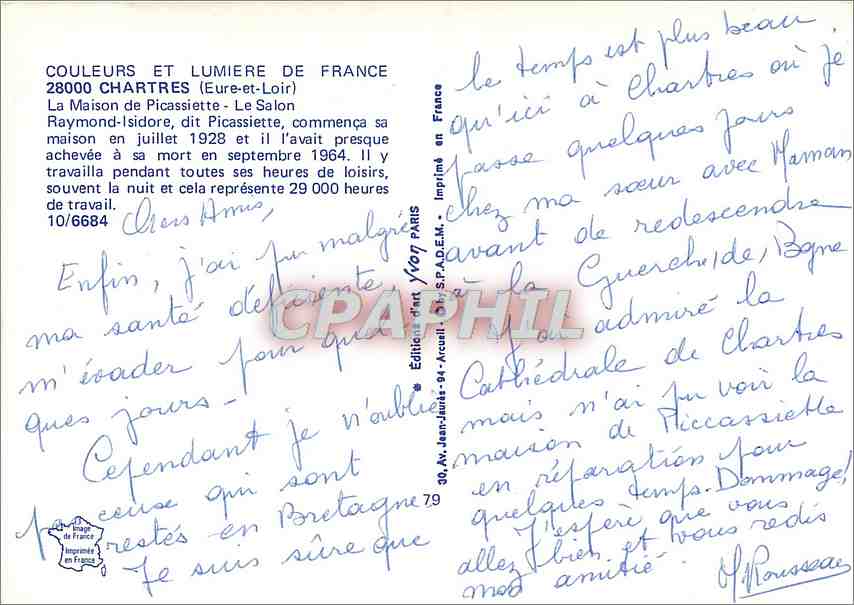 COULEURS ET LUMIERE DE FRANCE
28000 CHARTRES (Eure-et-Loir)
La Maison de Picassiette - Le Salon
Raymond-Isidore, dit Picassiette, commença sa
maison en juillet 1928 et il l'avait presque
achevée à sa mort en septembre 1964. Il y
travailla pendant toutes ses heures de loisirs,
souvent la nuit et cela représente 29 000 heures
de travail.
10/6684
Chers Amis,
Enfin, j'ai pu malgré
ma santé déficiente,
m'évader pour quel
ques jours -
Cependant je n'oublie
pas ceux qui sont
restés en Bretagne.
Je suis sûre que
Image
de France
Imprimée
en France
79
Editions d'art Yvon PARIS
30, Av. Jean-Jaurès - 94 - Arcueil - © by S.P.A.D.E.M. - Imprimé en France
CPAPHIL
le temps est plus beau
qu'ici à Chartres où je
passe quelques jours
chez ma sœur avec Maman
avant de redescendre
à la Guerche, de, Bgne
J'ai admiré la
Cathédrale de Chartres
mais n'ai pu voir la
maison de Piccassiette
en réparation pour
quelques temps. Dommage!
J'espère que vous
allez bien et vous redis
mon amitié.
M Rousseau